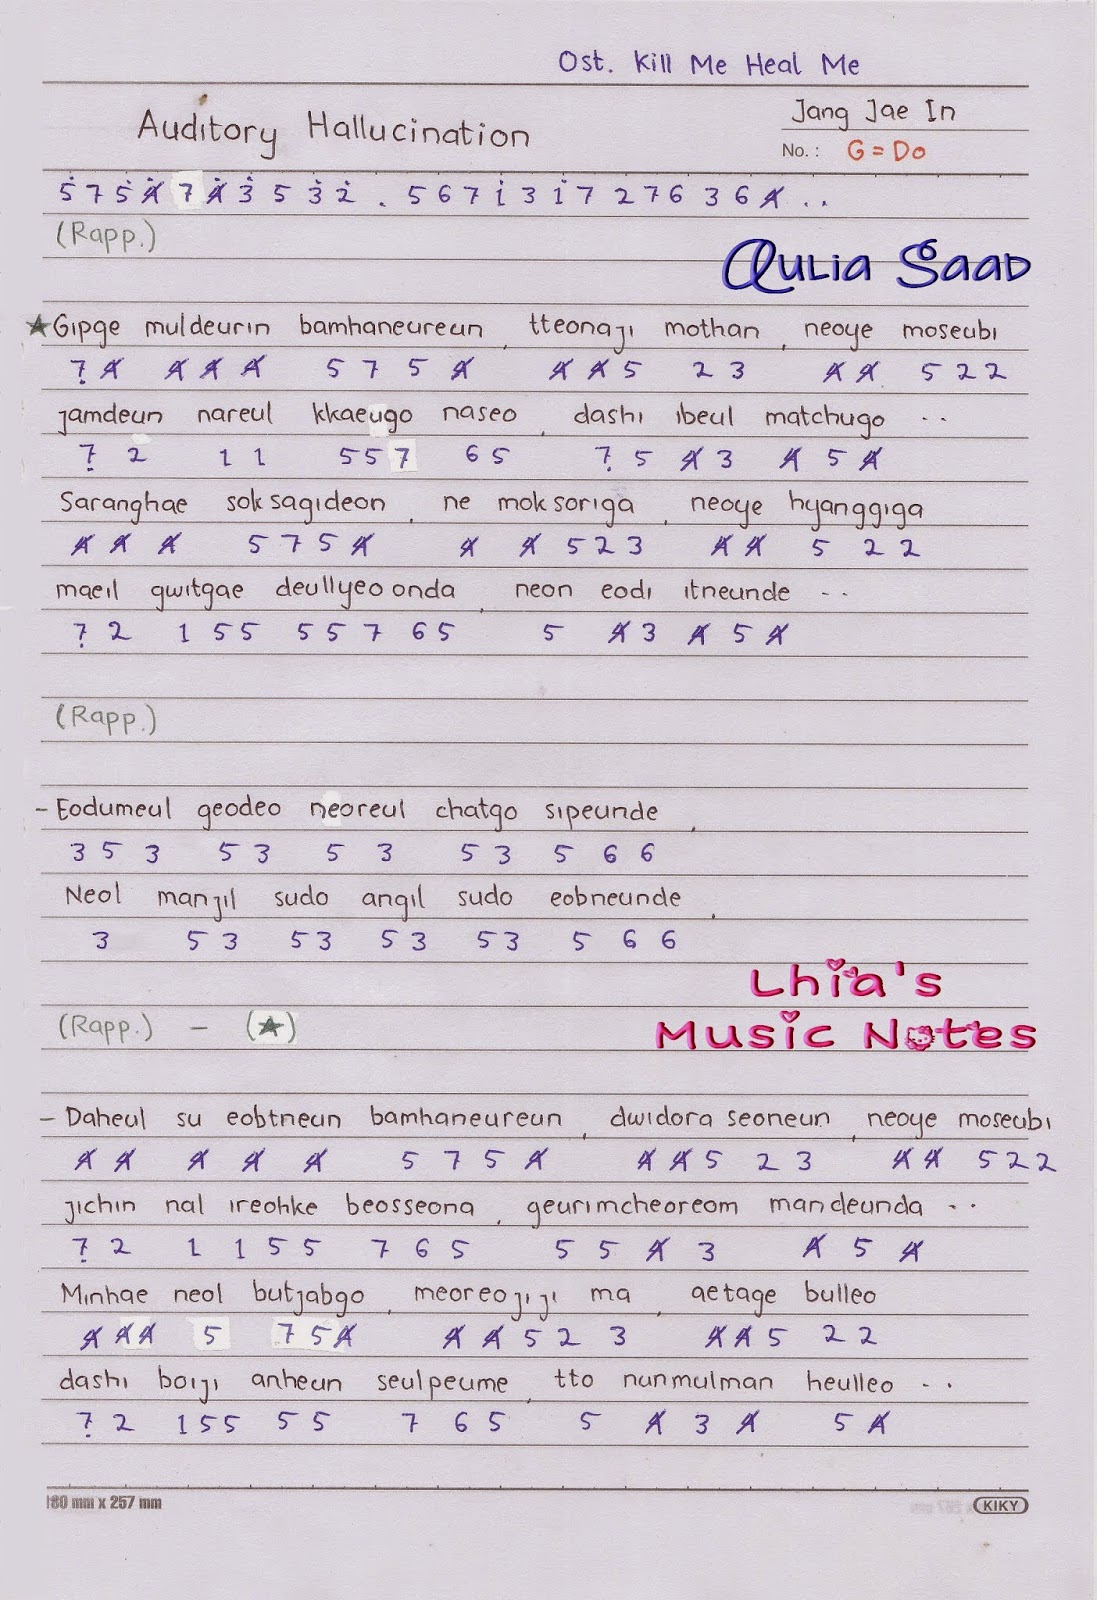 Ost. Kill Me Heal Me
Jang Jae In
Auditory Hallucination
No. : G = Do
5̇ 7 5̇ 4̸̇ 7 4̸̇ 3̇ 5 3̇ 2̇ . 5 6 7 1̇ 3 1̇ 7 2 7 6 3 6 4̸ . .
(Rapp.)
Aulia Saad
★ Gipge muldeurin bamhaneureun , tteonaji mothan , neoye moseubi
7̣ 4̸ 4̸ 4̸ 4̸ 5 7 5 4̸ 4̸ 4̸ 5 2 3 4̸ 4̸ 5 2 2
jamdeun nareul kkaeugo naseo , dashi ibeul matchugo . .
7̣ 2 1 1 5 5 7 6 5 7̣ 5 4̸ 3 4̸ 5 4̸
Saranghae sok sagideon , ne mok soriga , neoye hyanggiga
4̸ 4̸ 4̸ 5 7 5 4̸ 4̸ 4̸ 5 2 3 4̸ 4̸ 5 2 2
maeil gwitgae deullyeo onda , neon eodi itneunde . .
7̣ 2 1 5 5 5 5 7 6 5 5 4̸ 3 4̸ 5 4̸
(Rapp.)
- Eodumeul geodeo neoreul chatgo sipeunde ,
3 5 3 5 3 5 3 5 3 5 6 6
Neol manjil sudo angil sudo eobneunde ,
3 5 3 5 3 5 3 5 3 5 6 6
Lhia's
(Rapp.) - (★)
Music Notes
- Daheul su eobtneun bamhaneureun , dwidora seoneun , neoye moseubi
4̸ 4̸ 4̸ 4̸ 4̸ 5 7 5 4̸ 4̸ 4̸ 5 2 3 4̸ 4̸ 5 2 2
jichin nal ireohke beosseona , geurimcheoreom mandeunda . .
7̣ 2 1 1 5 5 7 6 5 5 5 4̸ 3 4̸ 5 4̸
Minhae neol butjabgo , meoreojiji ma , aetage bulleo
4̸ 4̸ 4̸ 5 7 5 4̸ 4̸ 4̸ 5 2 3 4̸ 4̸ 5 2 2
dashi boiji anheun seulpeume , tto nunmulman heulleo . .
7̣ 2 1 5 5 5 5 7 6 5 5 4̸ 3 4̸ 5 4̸
180 mm x 257 mm
KIKY